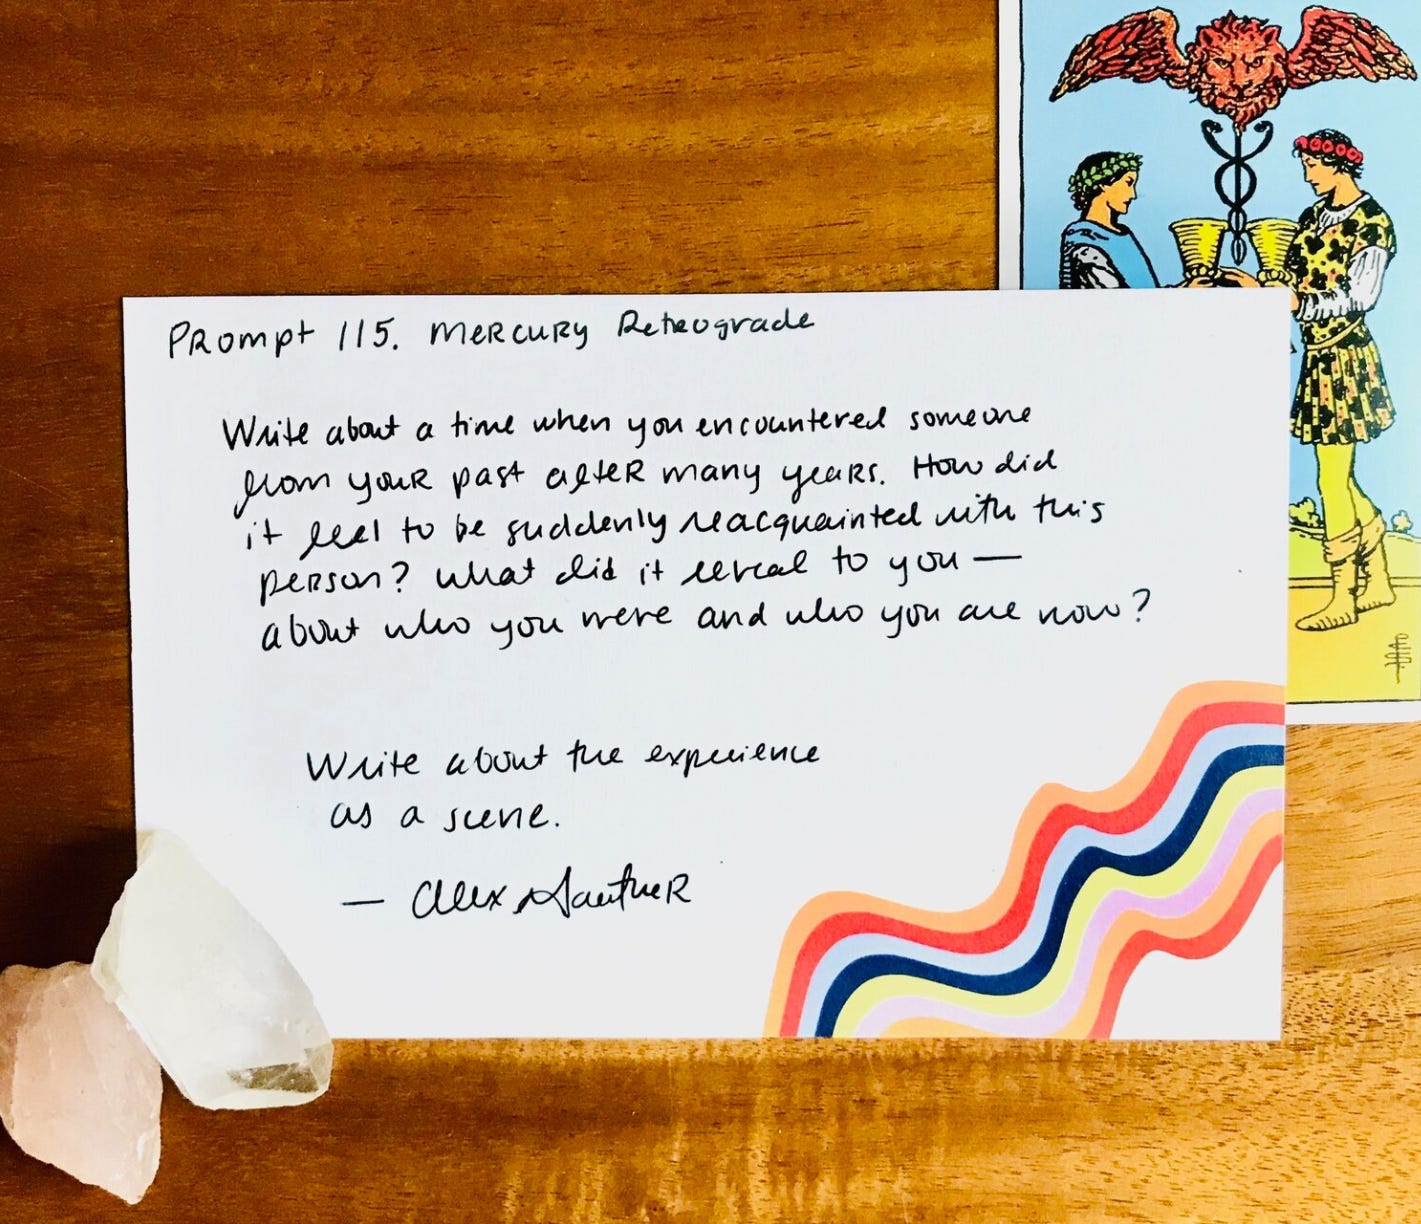 Prompt 115. Mercury Retrograde
Write about a time when you encountered someone
from your past after many years. How did
it feel to be suddenly reacquainted with this
person? What did it reveal to you —
about who you were and who you are now?
Write about the experience
as a scene.
— Alex